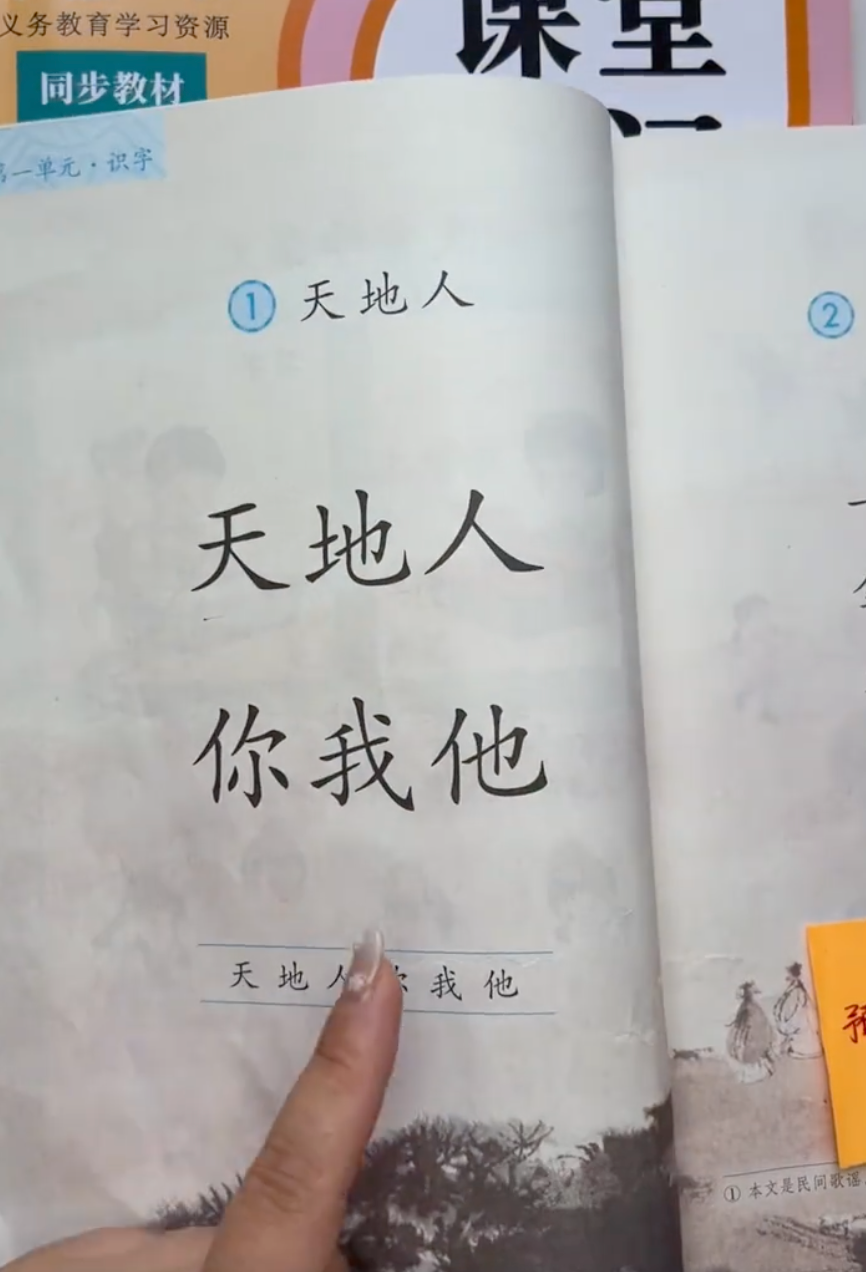 义务教育学习资源
课堂
同步教材
一单元·识字
① 天地人
②
天地人
你我他
天 地 人 你 我 他
① 本文是民间歌谣